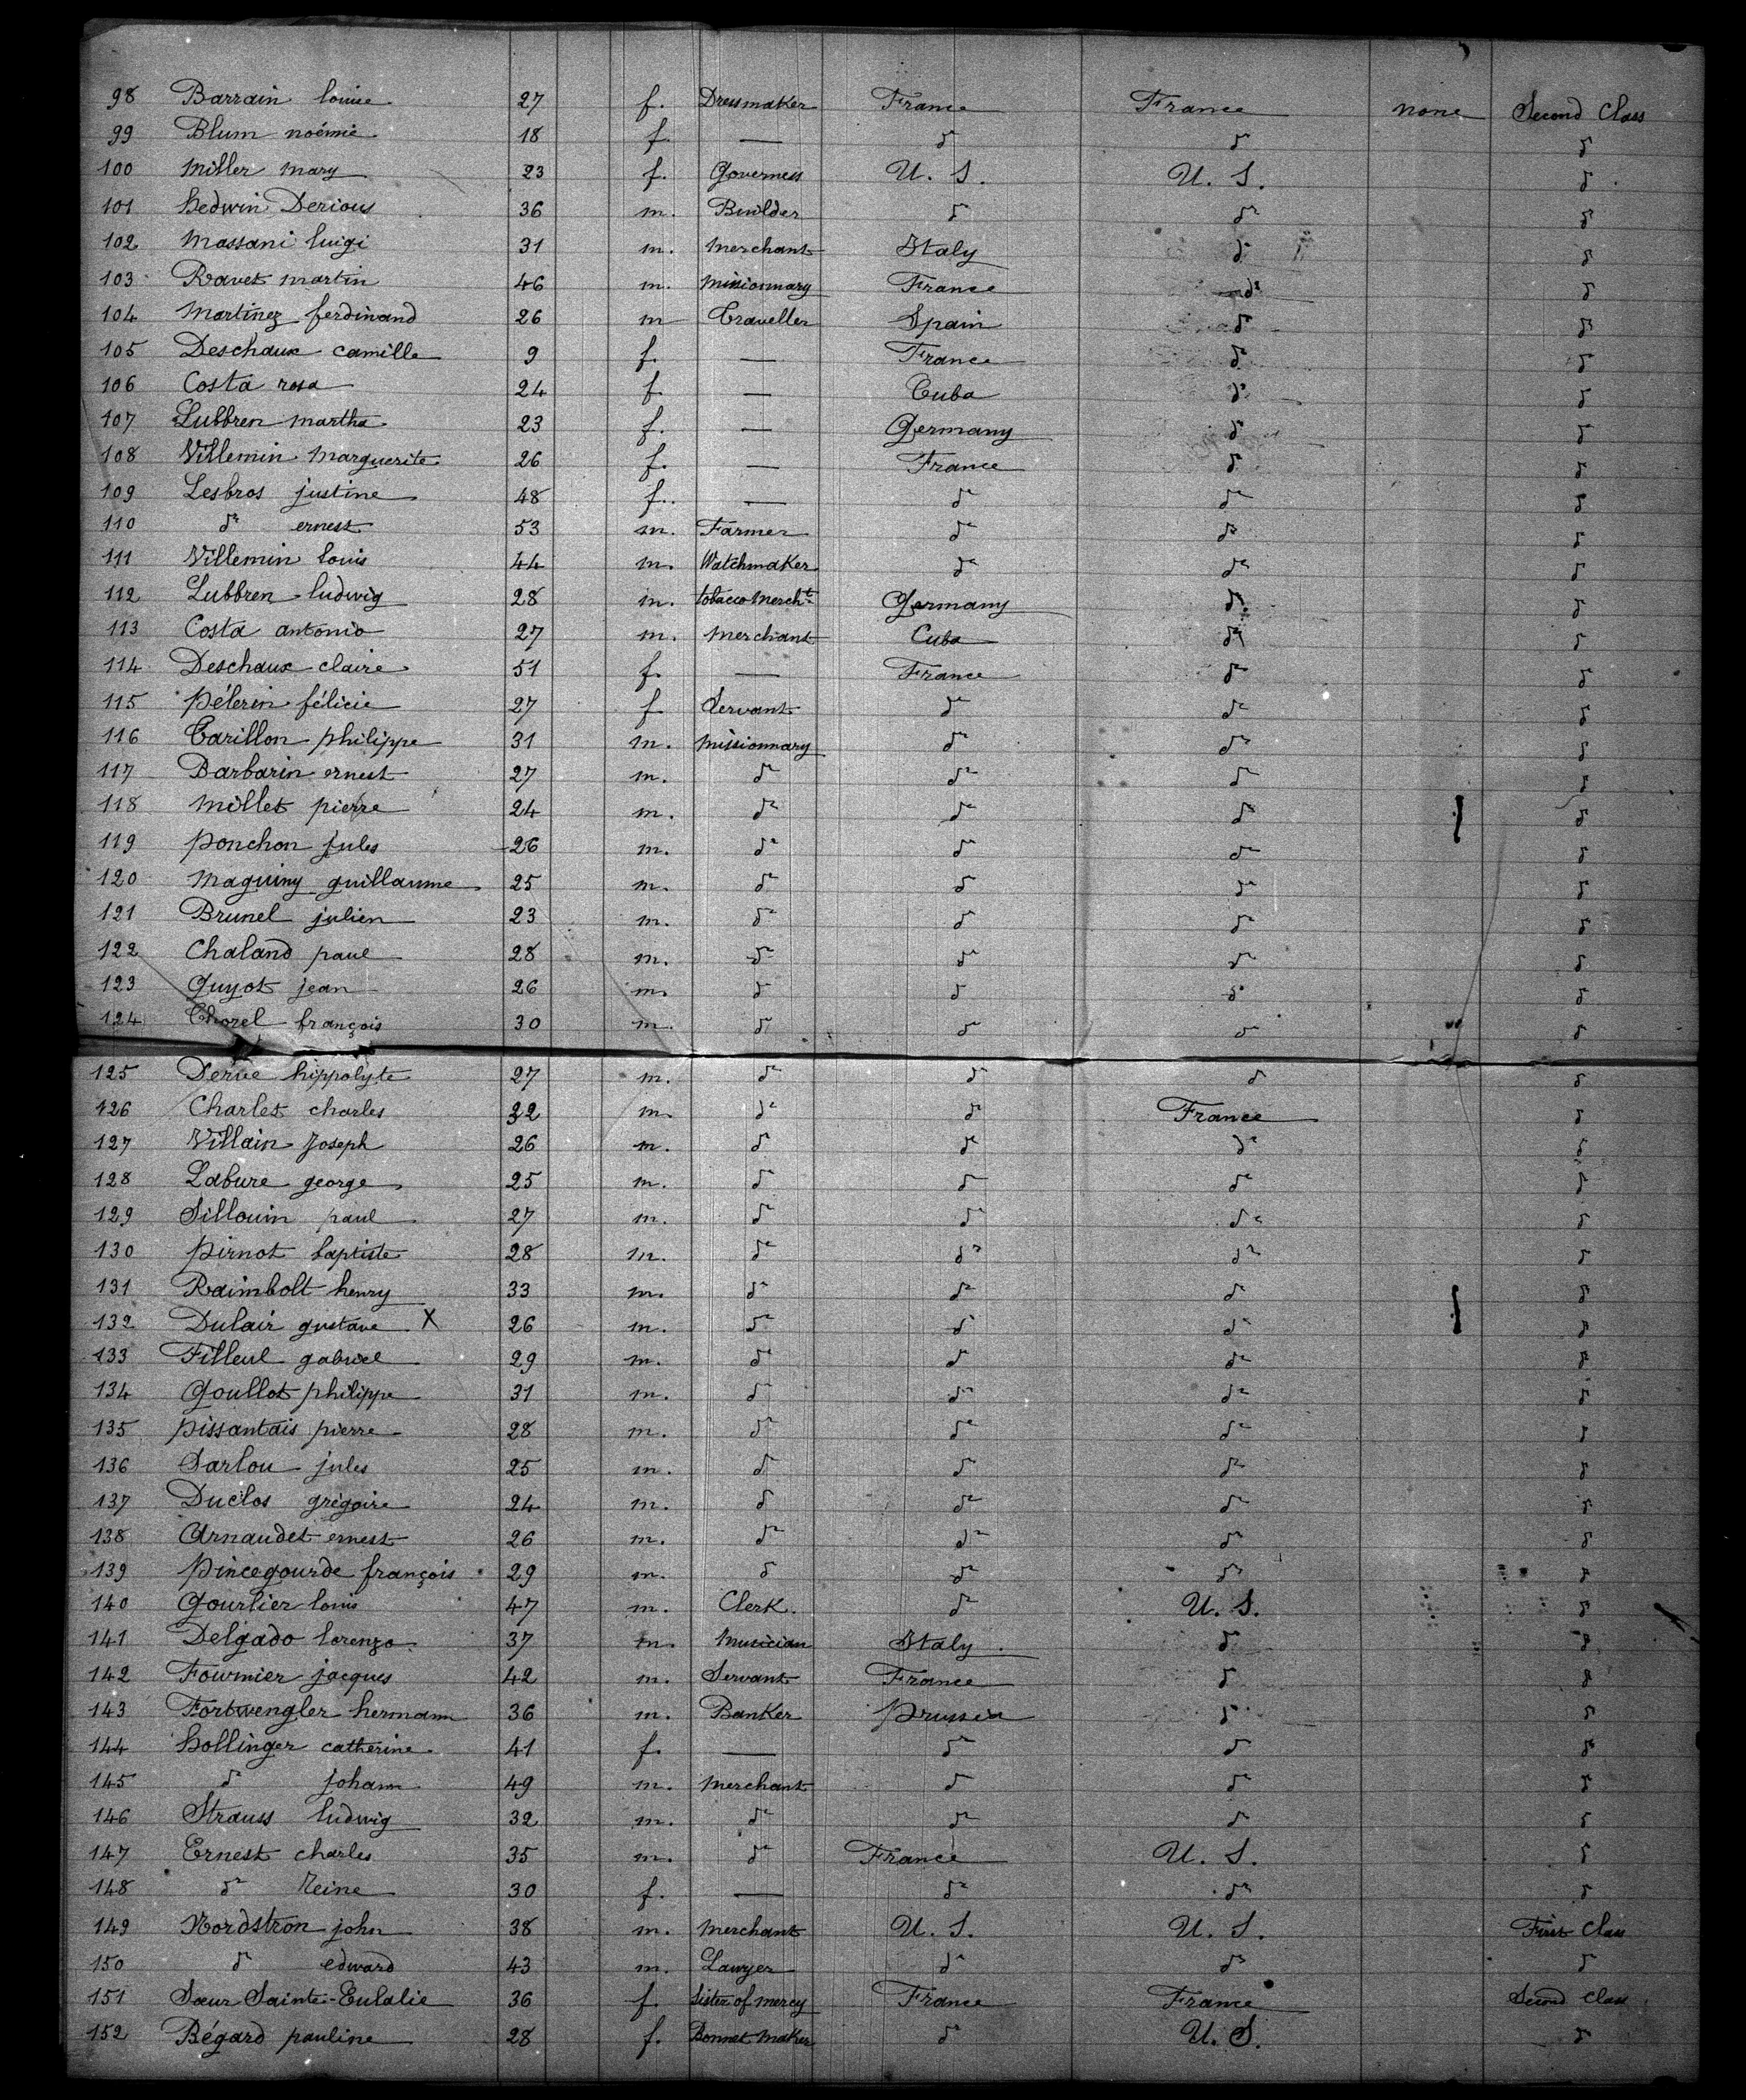 98 Barrain louise 27 f. Dressmaker France France none Second Class
99 Blum noémie 18 f — d° d° d°
100 Miller mary 23 f. Governess U. S. U. S. d°
101 Hedwin Derious 36 m. Builder d° d° d°
102 Massani luigi 31 m. Merchant Italy d° d°
103 Ravet martin 46 m. Missionnary France d° d°
104 Martinez ferdinand 26 m Traveller Spain d° d°
105 Deschaux camille 9 f. — France d° d°
106 Costa rosa 24 f. — Cuba d° d°
107 Lubbren martha 23 f. — Germany d° d°
108 Villemin Marguerite 26 f. — France d° d°
109 Lesbros justine 48 f. — d° d° d°
110 d° ernest 53 m. Farmer d° d° d°
111 Villemin louis 44 m. Watchmaker d° d° d°
112 Lubbren ludwig 28 m. tobacco Mercht Germany d° d°
113 Costa antonio 27 m. Merchant Cuba d° d°
114 Deschaux claire 51 f. — France d° d°
115 Pélerin félicie 27 f Servant d° d° d°
116 Tarillon philippe 31 m. Missionnary d° d° d°
117 Barbarin ernest 27 m. d° d° d° d°
118 Millet pierre 24 m. d° d° d° d°
119 Ponchon jules 26 m. d° d° d° d°
120 Maguiny guillaume 25 m. d° d° d° d°
121 Brunel julien 23 m. d° d° d° d°
122 Chaland paul 28 m. d° d° d° d°
123 Guyot jean 26 m. d° d° d° d°
124 Thorel françois 30 m. d° d° d° d°
125 Derue hippolyte 27 m. d° d° d° d°
126 Charlet charles 32 m. d° d° France d°
127 Villain Joseph 26 m. d° d° d° d°
128 Labure george 25 m. d° d° d° d°
129 Sillouin paul 27 m. d° d° d° d°
130 Pirnot baptiste 28 m. d° d° d° d°
131 Raimbolt henry 33 m. d° d° d° d°
132 Dulair gustave X 26 m. d° d° d° d°
133 Filleul gabriel 29 m. d° d° d° d°
134 Goullot philippe 31 m. d° d° d° d°
135 Pissantais pierre 28 m. d° d° d° d°
136 Sarlou jules 25 m. d° d° d° d°
137 Duclos grégoire 24 m. d° d° d° d°
138 Arnaudet ernest 26 m. d° d° d° d°
139 Pincegourde françois 29 m. d° d° d° d°
140 Gourlier louis 47 m. Clerk. d° U. S. d°
141 Delgado lorenzo 37 m. Musician Italy d° d°
142 Fournier jacques 42 m. Servant France d° d°
143 Fortwengler hermann 36 m. Banker Prussia d° d°
144 Hollinger catherine 41 f. — d° d° d°
145 d° johann 49 m. Merchant d° d° d°
146 Strauss ludwig 32 m. d° d° d° d°
147 Ernest charles 35 m. d° France U. S. d°
148 d° Reine 30 f. — d° d° d°
149 Nordstron john 38 m. Merchant U. S. U. S. First Class
150 d° edward 43 m. Lawyer d° d° d°
151 Sœur Sainte-Eulalie 36 f. Sister of mercy France France Second Class
152 Bégard pauline 28 f. Bonnet Maker d° U. S. d°